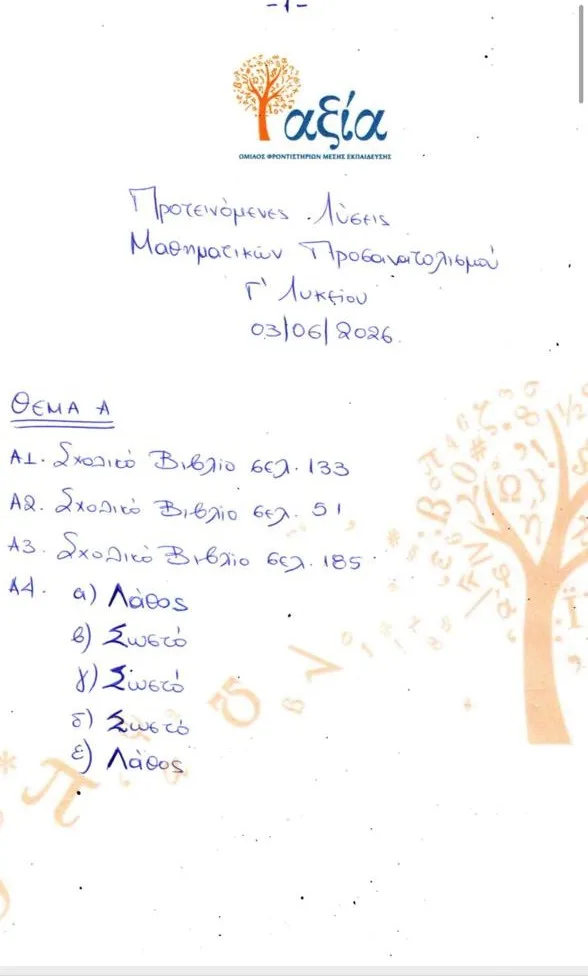 -1-
αξία
ΟΜΙΛΟΣ ΦΡΟΝΤΙΣΤΗΡΙΩΝ ΜΕΣΗΣ ΕΚΠΑΙΔΕΥΣΗΣ
Προτεινόμενες Λύσεις
Μαθηματικών Προσανατολισμού
Γ' Λυκείου
03/06/2026.
ΘΕΜΑ Α
Α1. Σχολικό Βιβλίο σελ. 133
Α2. Σχολικό Βιβλίο σελ. 51
Α3. Σχολικό Βιβλίο σελ. 185
Α4. α) Λάθος
β) Σωστό
γ) Σωστό
δ) Σωστό
ε) Λάθος